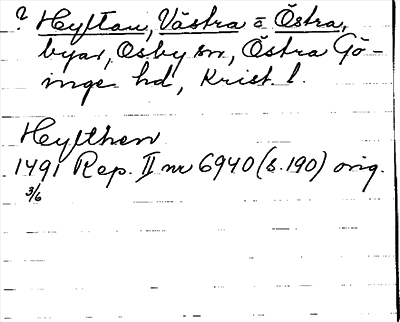 ? Heyltan, Västra o Östra,
byar, Osby sn, Östra Gö-
inge hd, Krist. l.
Heylthen
1491 Rep. II nr 6940 (s. 190) orig.
3/6